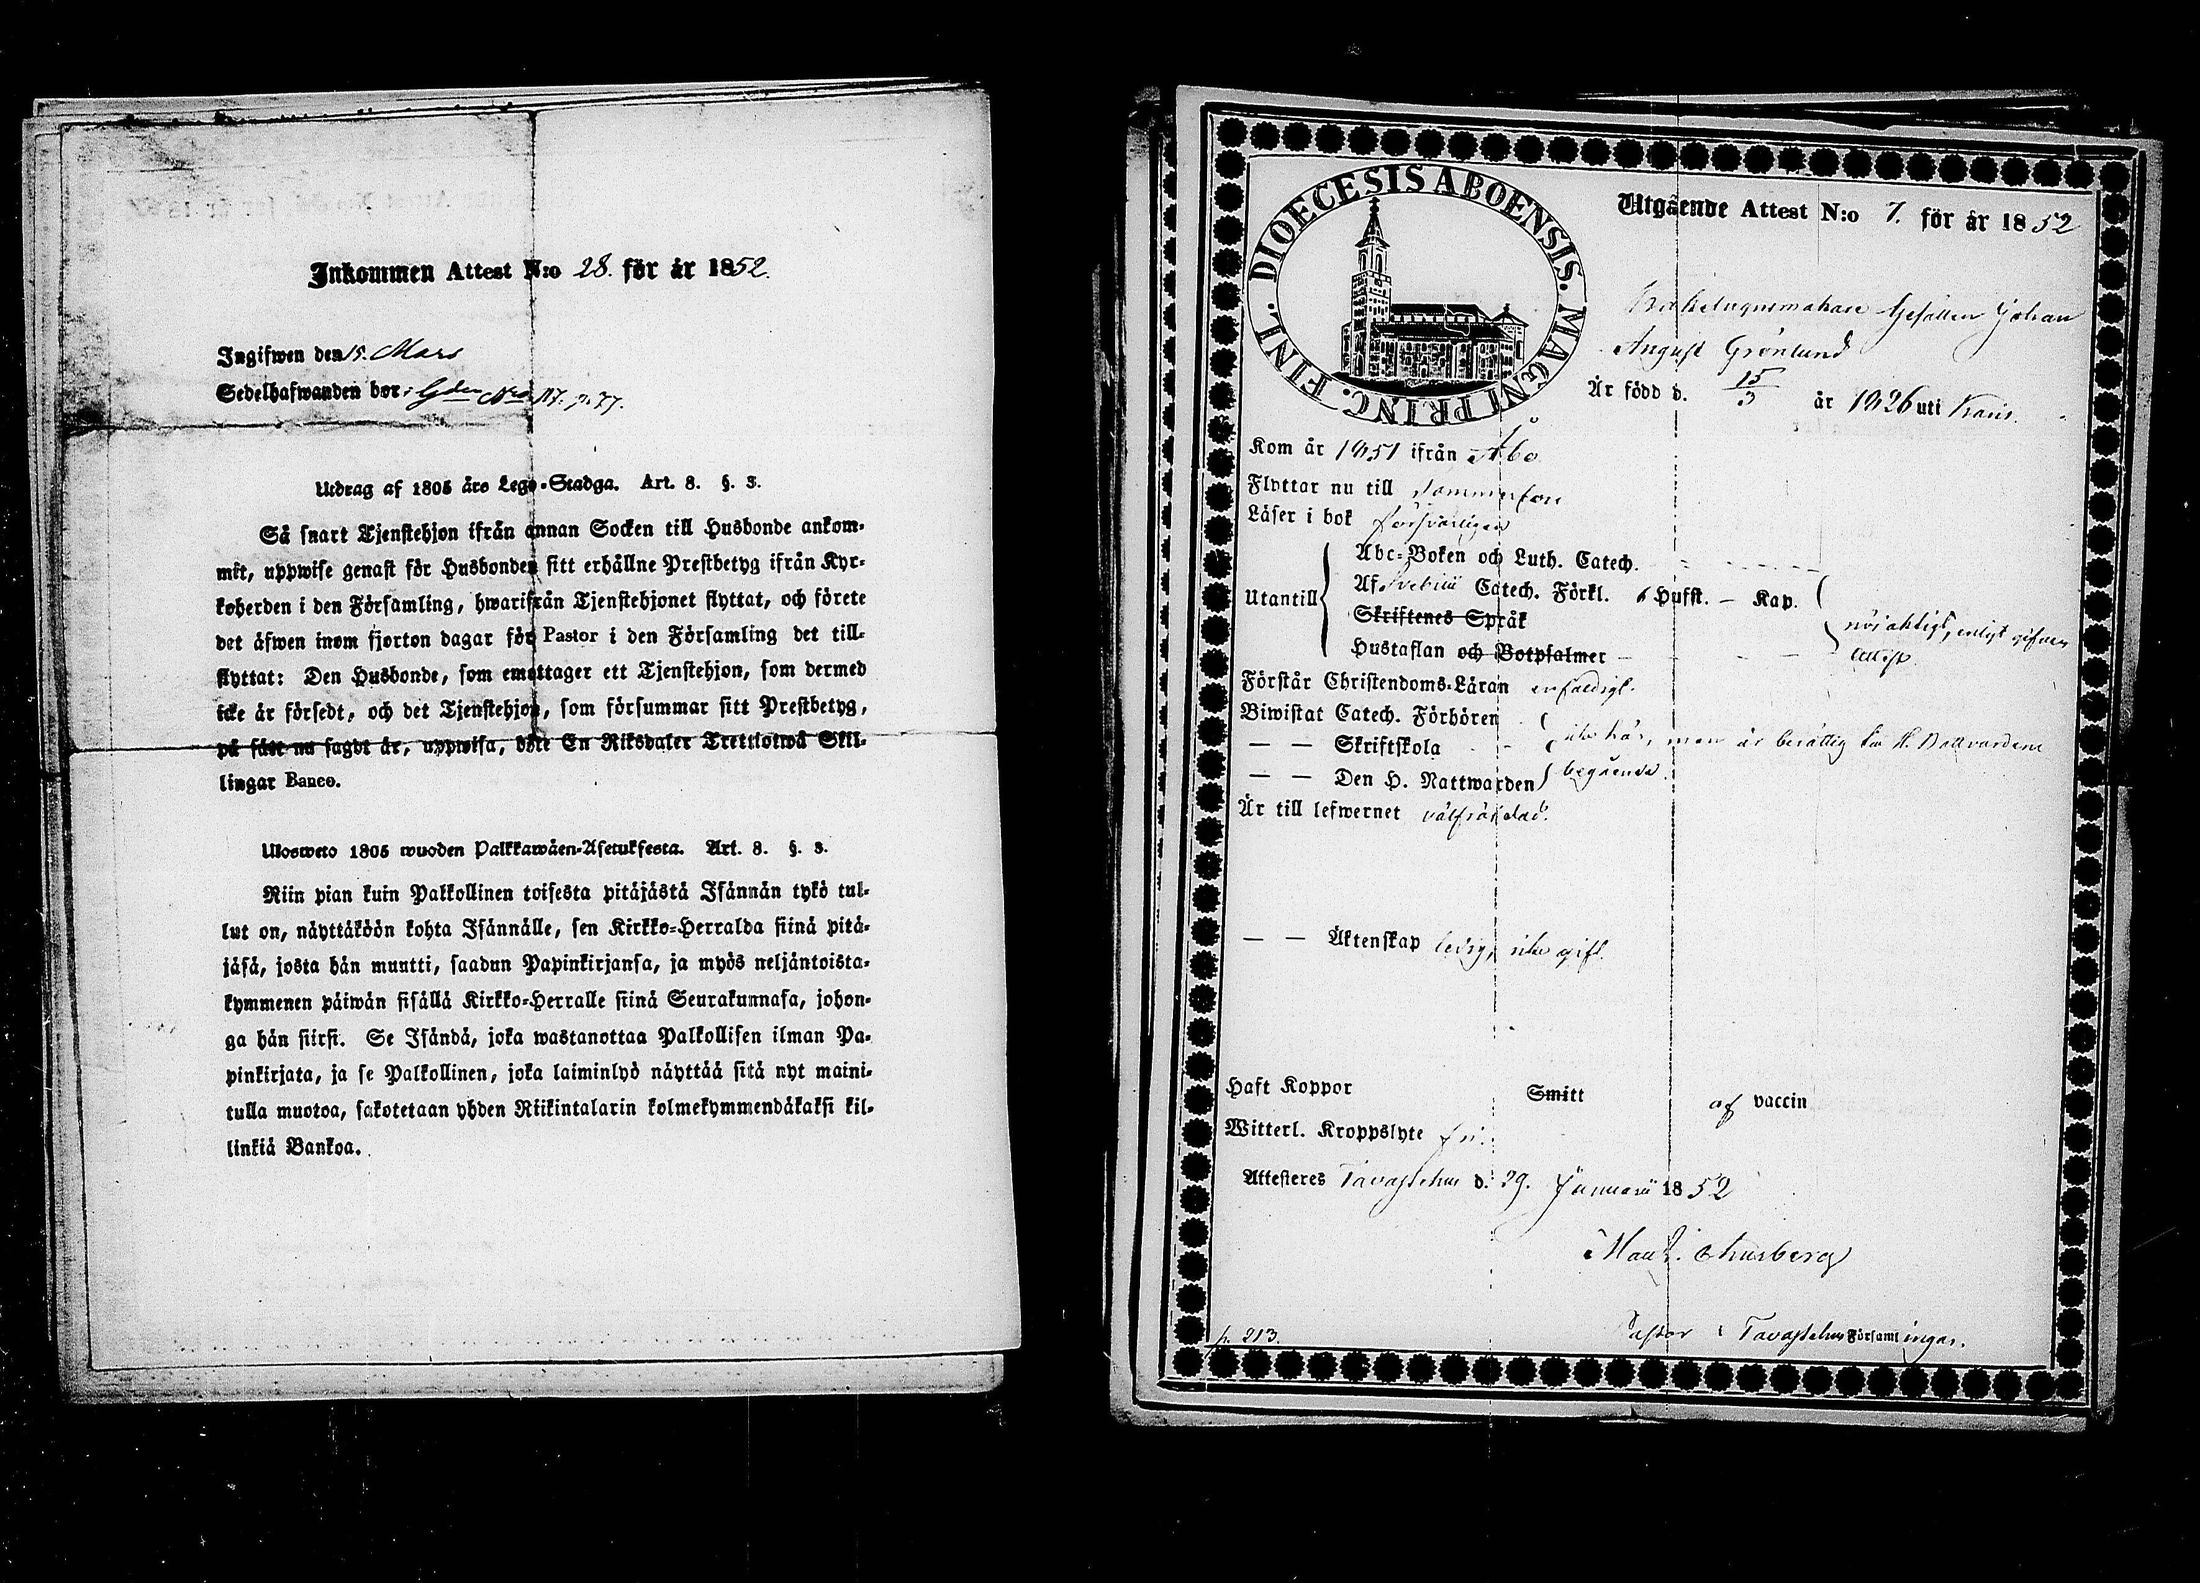 Inkommen Attest N:o 28. för år 1852.
Ingifwen den 15. Mars
Sedelhafwanden bor i Gden Nro 117. p. 77.
Utdrag af 1805 års Lego-Stadga. Art. 8. §. 3.
Så snart Tjenstehjon ifrån annan Socken till Husbonde ankom-
mit, uppwise genast för Husbonden sitt erhållne Prestbetyg ifrån Kyr-
koherden i den Församling, hwarifrån Tjenstehjonet flyttat, och förete
det äfwen inom fjorton dagar för Pastor i den Församling det till-
flyttat: Den Husbonde, som emottager ett Tjenstehjon, som dermed
icke är försedt, och det Tjenstehjon, som försummar sitt Prestbetyg,
på sätt nu sagdt är, uppwisa, böte En Riksdaler Trettiotwå Skil-
lingar Banco.
Ulosweto 1805 wuoden Palkkawäen-Asetuksesta. Art. 8. §. 3.
Niin pian kuin Palkollinen toisesta pitäjästä Isännän tykö tul-
lut on, näyttäköön kohta Isännälle, sen Kirkko-Herralda siinä pitä-
jäsä, josta hän muutti, saadun Papinkirjansa, ja myös neljäntoista-
kymmenen päiwän sisällä Kirkko-Herralle siinä Seurakunnasa, johon-
ga hän siirsi. Se Isändä, joka wastanottaa Palkollisen ilman Pa-
pinkirjata, ja se Palkollinen, joka laiminlyö näyttää sitä nyt maini-
tulla muotoa, sakotetaan yhden Riikintalarin kolmekymmendäkaksi kil-
linkiä Bankoa.
DIOECESIS ABOENSIS. MAGNI PRINC. FINL.
Utgående Attest N:o 7. för år 1852
Kakelugnsmakare Gesällen Johan
August Grönlund
Är född d. 15/3 år 1826 uti Karis.
Kom år 1851 ifrån Åbo
Flyttar nu till Tammerfors
Läser i bok försvarligen
Abc-Boken och Luth. Catech.
Utantill Af Svebilii Catech. Förkl. 6 Hufst. — Kap.
Skriftenes Språk nöjaktigt, enligt gifven
Hustaflan och Botpsalmer — attest.
Förstår Christendoms-Läran enfaldigt.
Biwistat Catech. Förhören
— — Skriftskola icke här, men är berättig. H. Nattvarden
— — Den H. Nattwarden begående.
Är till lefwernet välfräjdad.
— — Äktenskap ledig, icke gift.
Haft Koppor Smitt af vaccin
Witterl. Kroppslyte fri.
Attesteres Tavastehus d. 29. Januarii 1852
p. 213. Pastor i Tavastehus Församlingar.